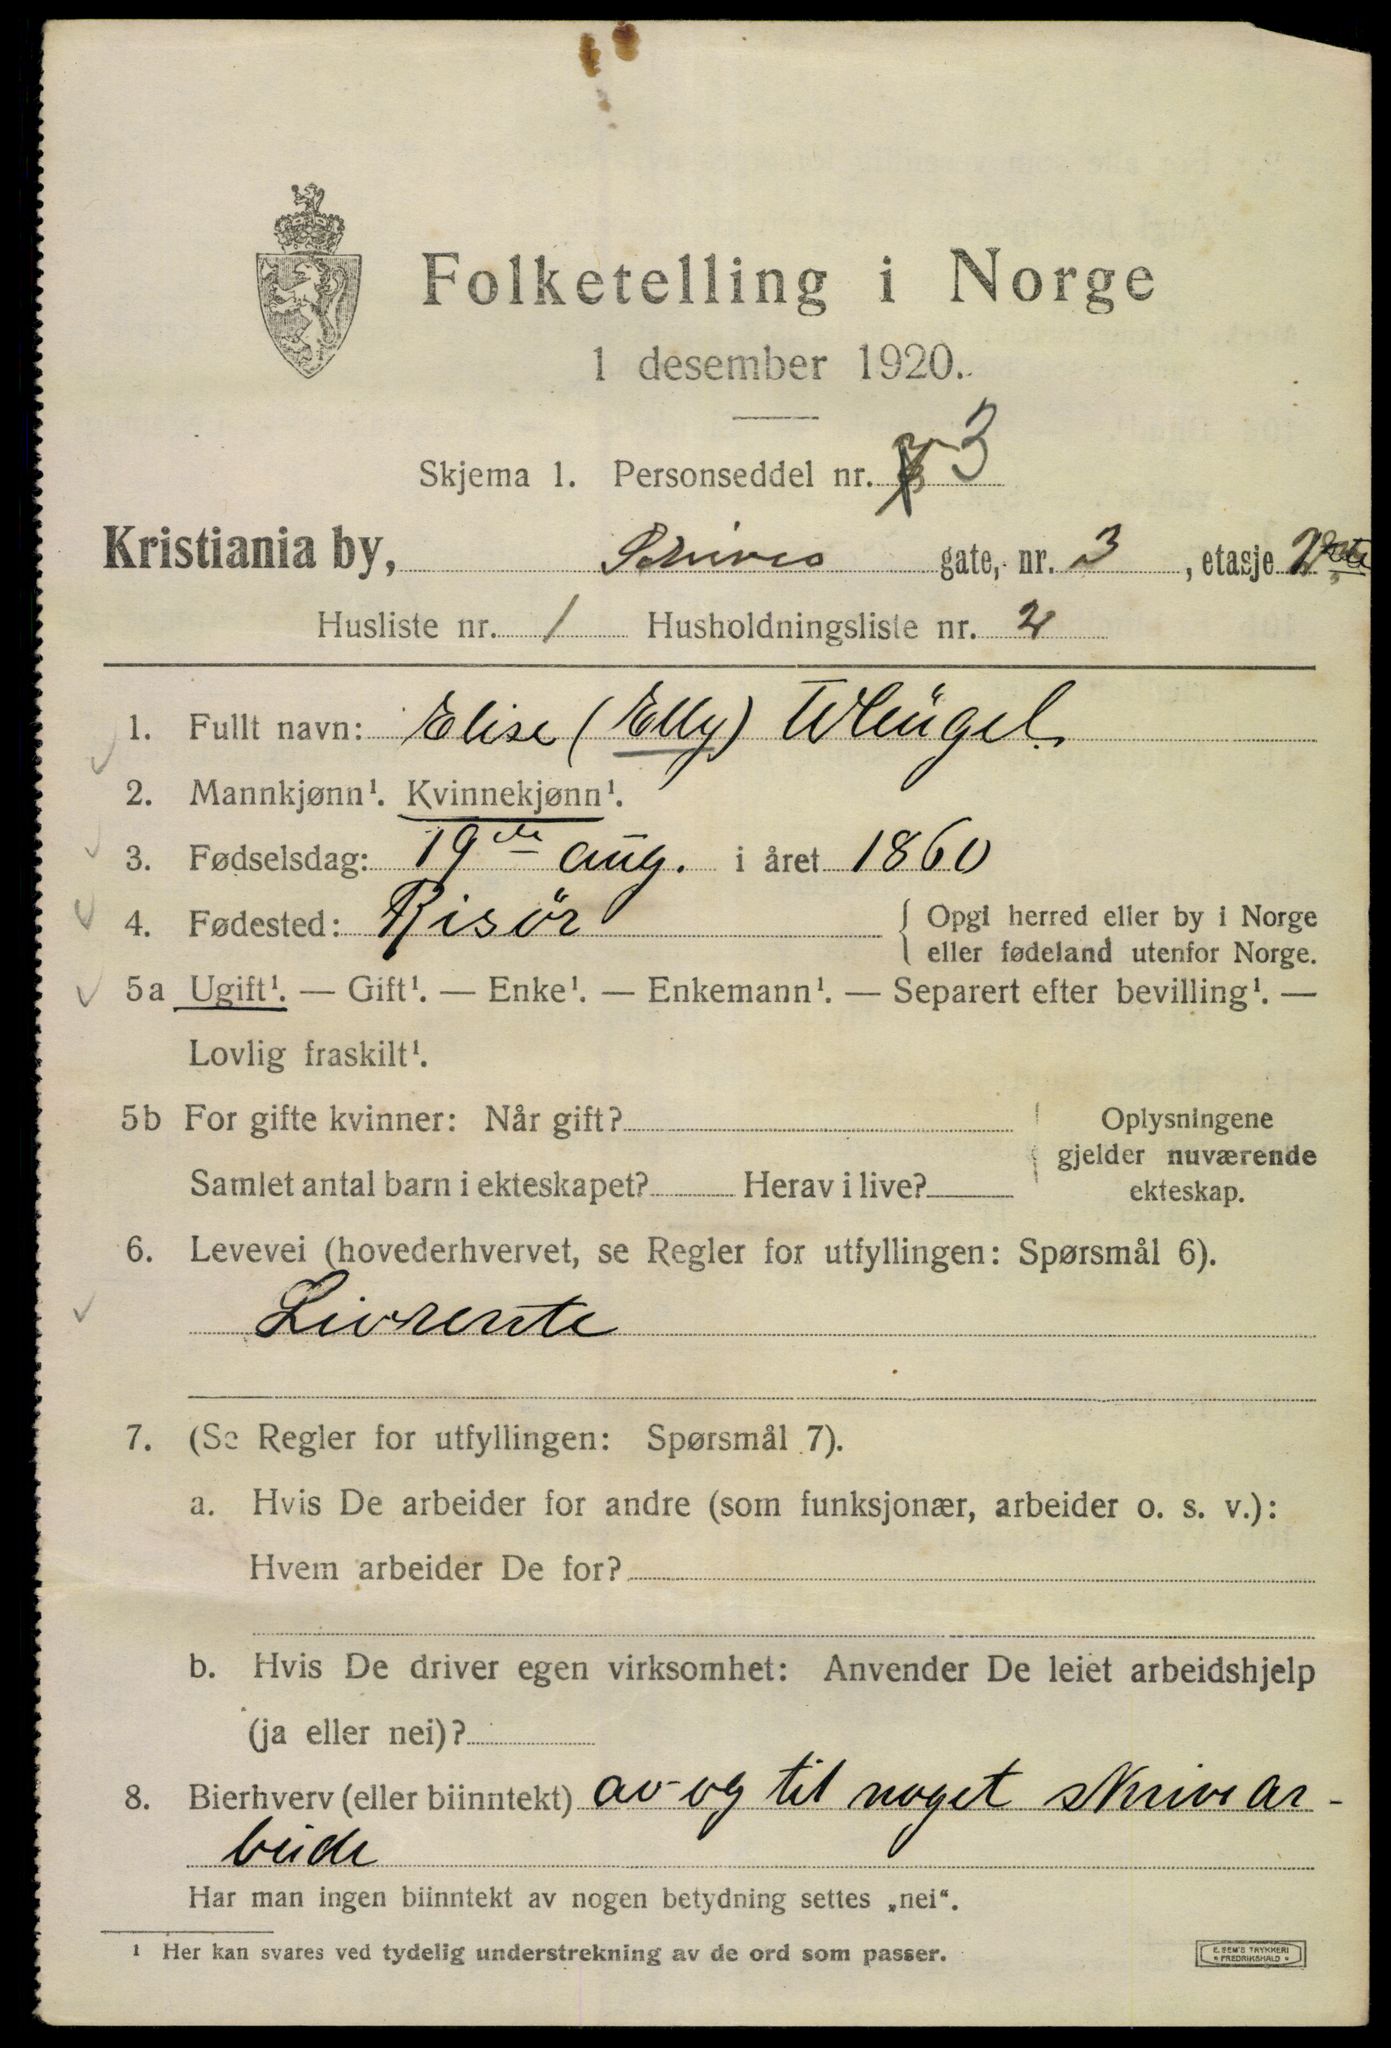 Folketelling i Norge
1 desember 1920.
Skjema 1. Personseddel nr. 3
Kristiania by, Schives gate, nr. 3, etasje 2
Husliste nr. 1 Husholdningsliste nr. 2
1. Fullt navn: Elise (Elly) Whügel.
2. Mannkjønn¹. Kvinnekjønn¹.
3. Fødselsdag: 19de aug. i året 1860
4. Fødested: Risør { Opgi herred eller by i Norge
eller fødeland utenfor Norge.
5a Ugift¹. — Gift¹. — Enke¹. — Enkemann¹. — Separert efter bevilling¹. —
Lovlig fraskilt¹.
5b For gifte kvinner: Når gift? Oplysningene
gjelder nuværende
Samlet antal barn i ekteskapet? Herav i live? ekteskap.
6. Levevei (hovederhvervet, se Regler for utfyllingen: Spørsmål 6).
Livrente
7. (Se Regler for utfyllingen: Spørsmål 7).
a. Hvis De arbeider for andre (som funksjonær, arbeider o. s. v.):
Hvem arbeider De for?
b. Hvis De driver egen virksomhet: Anvender De leiet arbeidshjelp
(ja eller nei)?
8. Bierhverv (eller biinntekt) av og til noget skrivear-
beide
Har man ingen biinntekt av nogen betydning settes „nei“.
¹ Her kan svares ved tydelig understrekning av de ord som passer.
E. SEM'S TRYKKERI
FREDRIKSHALD